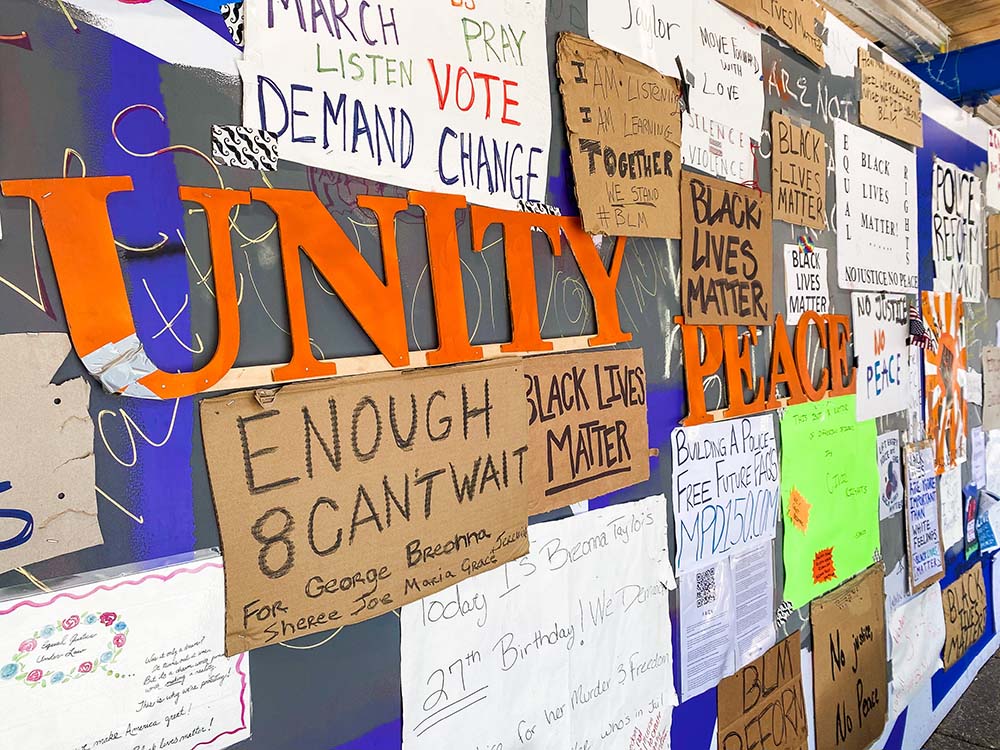 MARCH
PRAY
LISTEN
VOTE
DEMAND CHANGE
I AM LISTENING
I AM LEARNING
TOGETHER
WE STAND
#BLM
Taylor
MOVE FORWARD
WITH
LOVE
SILENCE
VIOLENCE
ARE NOT
BLACK
LIVES
MATTER
BLACK
LIVES
MATTER
BLACK
LIVES
MATTER
EQUAL
BLACK
LIVES
MATTER!
RIGHTS
NO JUSTICE NO PEACE
POLICE
REFORM
NO JUSTICE
NO
PEACE
UNITY
PEACE
ENOUGH
8 CANT WAIT
FOR George Breonna
Sheree Joe Maria Grace
BLACK LIVES
MATTER
BUILDING A POLICE-
FREE FUTURE FAQS
MPD150.COM
CIVIL
RIGHTS
IMPORTANT
THAN
WHITE
FEELINGS
BLACK
LIVES
MATTER
BLACK
LIVES
MATTER
Today Is Breonna Taylor's
27th Birthday! We Demand
for her Murder & Freedom
who's in Jail
Equal Justice
Under Law
This is why we're protesting!
make America great!
Black lives matter.
BLM
REFORM
No justice,
No Peace